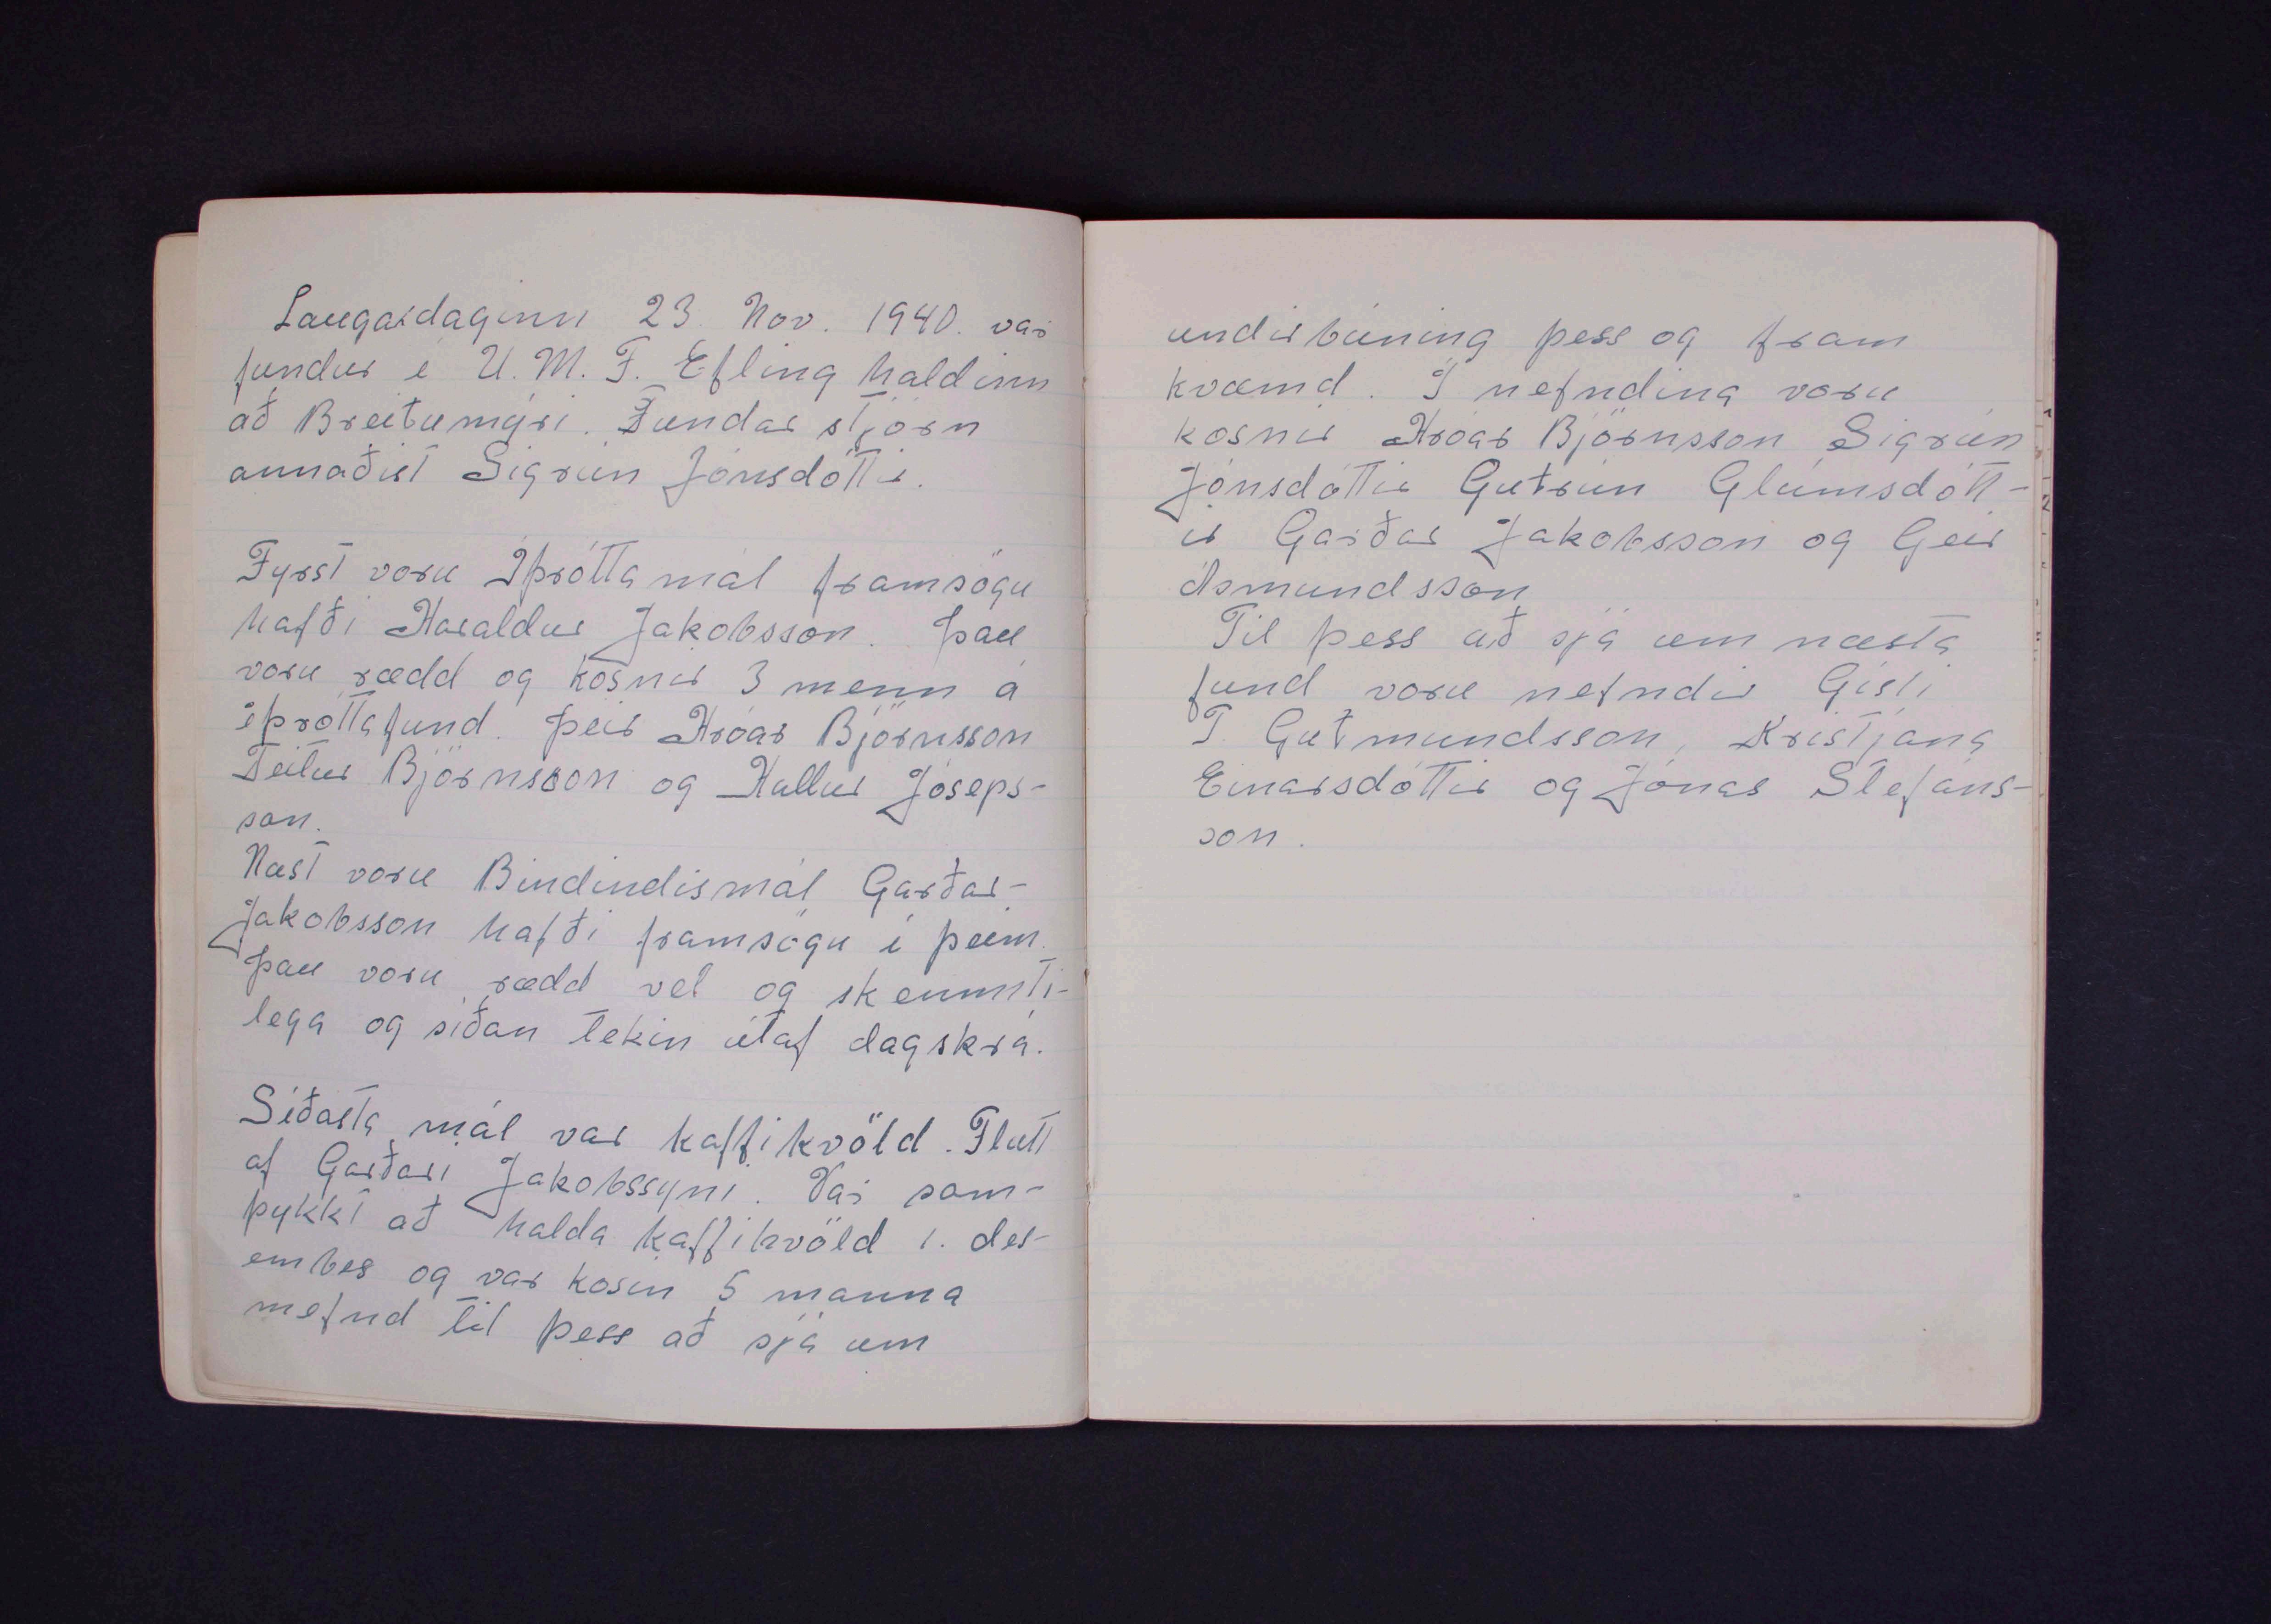 Laugardaginn 23. Nov. 1940. var
fundur í U. M. F. Efling haldinn
að Breiðumýri. Fundar stjórn
annaðist Sigrún Jónsdóttir.
Fyrst voru Íþrótta mál framsögu
hafði Haraldur Jakobsson. Þau
voru rædd og kosnir 3 menn á
íþróttafund. Þeir Hróar Björnsson
Teitur Björnsson og Hallur Jóseps-
son.
Næst voru Bindindismál Garðar-
Jakobsson hafði framsögu í þeim.
Þau voru rædd vel og skemmti-
lega og síðan tekin útaf dagskrá.
Síðasta mál var kaffikvöld. Flutt
af Garðari Jakobssyni. Var sam-
þykkt að halda kaffikvöld 1. des-
ember og var kosin 5 manna
nefnd til þess að sjá um
undirbúning þess og fram
kvæmd. Í nefndina voru
kosnir Hróar Björnsson Sigrún
Jónsdóttir Guðrún Glúmsdótt-
ir Garðar Jakobsson og Geir
Ásmundsson
Til þess að sjá um næsta
fund voru nefndir Gísli
T. Guðmundsson, Kristjana
Einarsdóttir og Jónas Stefáns-
son.